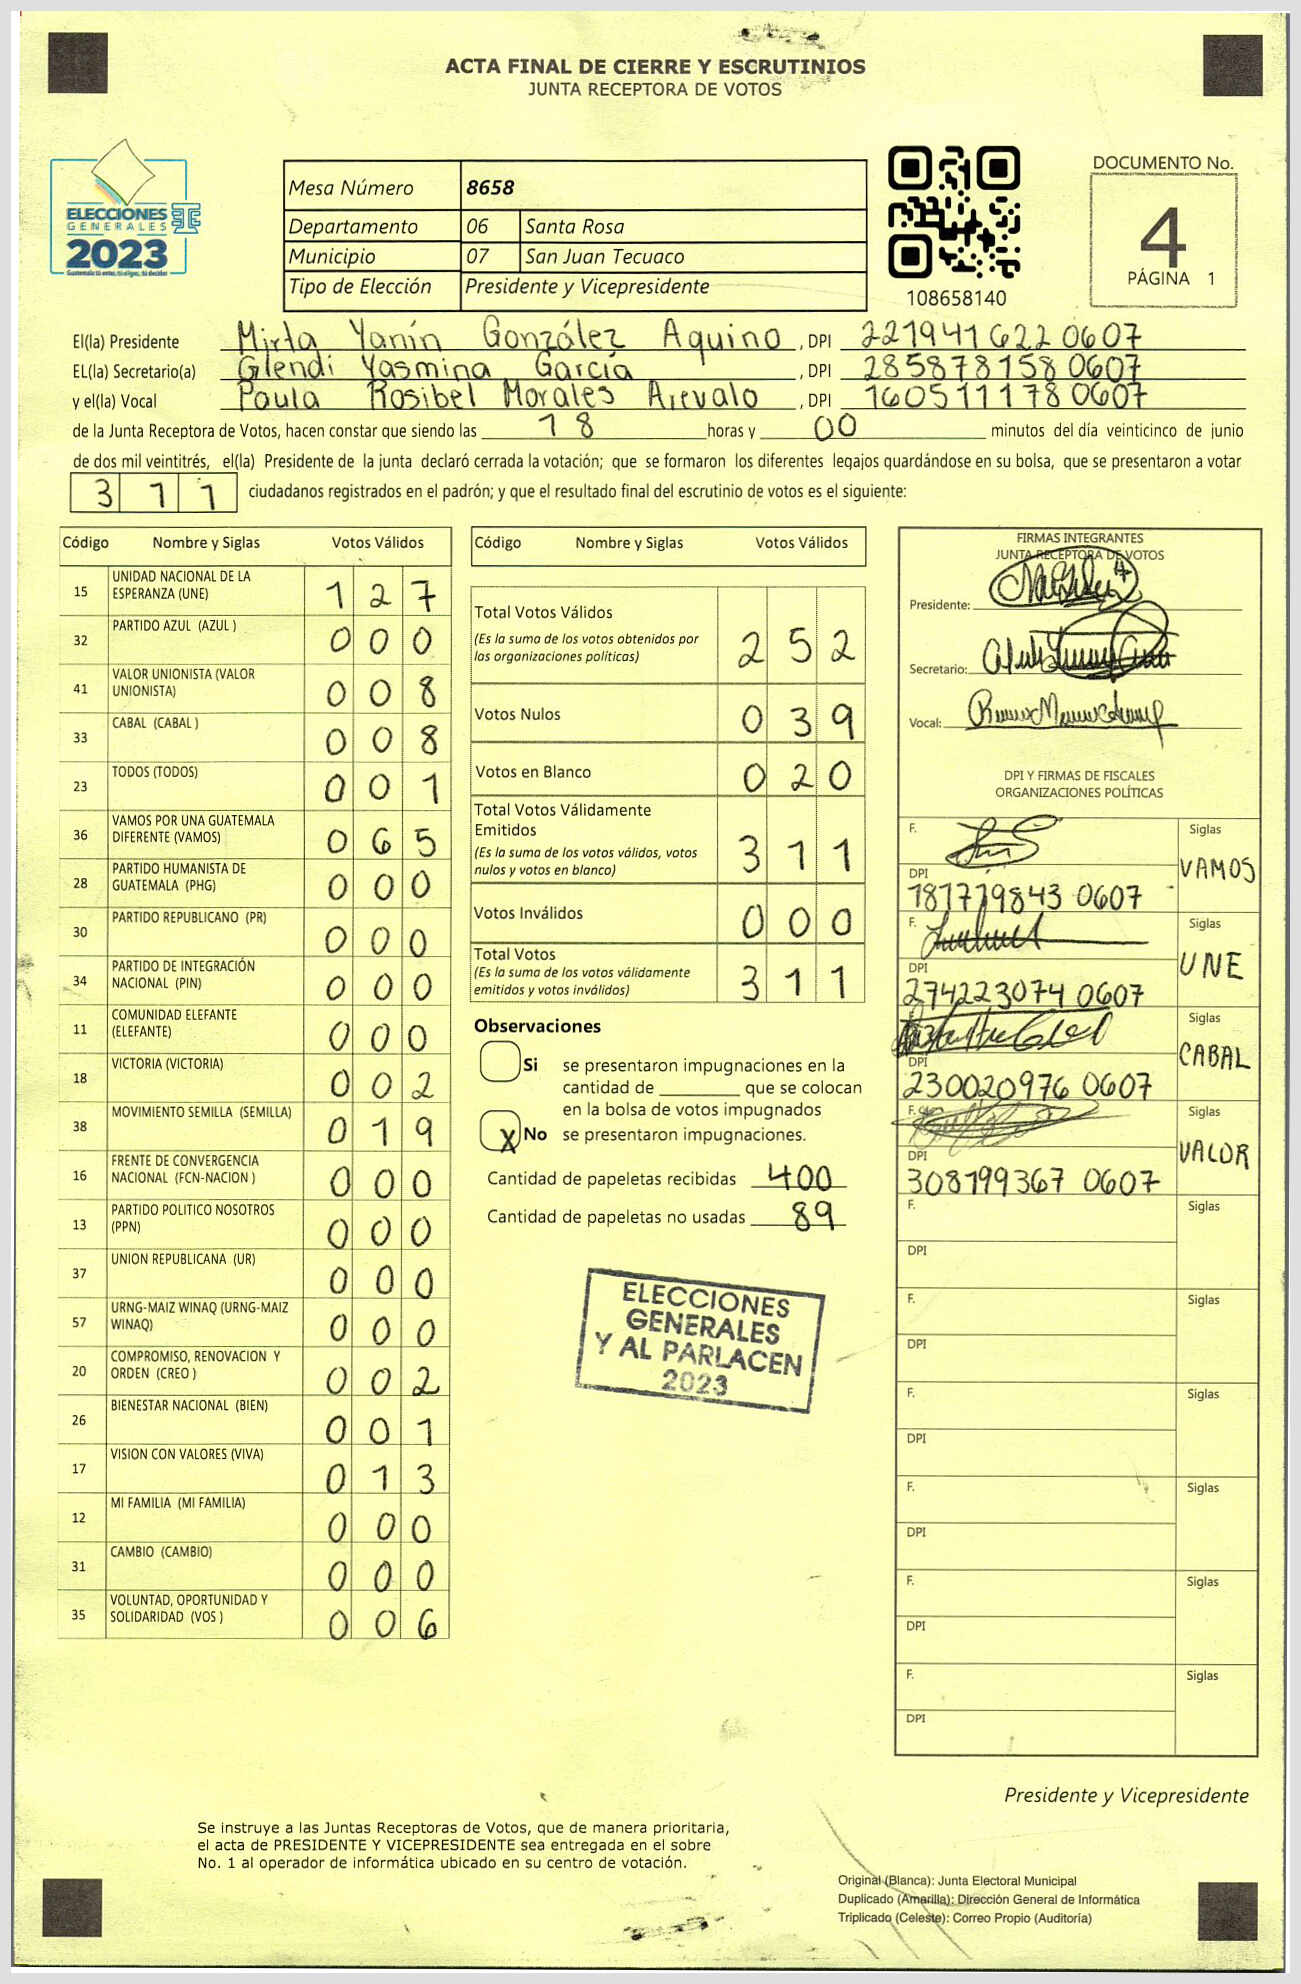 ACTA FINAL DE CIERRE Y ESCRUTINIOS
JUNTA RECEPTORA DE VOTOS
ELECCIONES
GENERALES
2023
Guatemala tú eres, tú eliges, tú decides
Mesa Número 8658
Departamento 06 Santa Rosa
Municipio 07 San Juan Tecuaco
Tipo de Elección Presidente y Vicepresidente
108658140
DOCUMENTO No.
4
PÁGINA 1
El(la) Presidente Mirta Yanín González Aquino, DPI 221941622 0607
EL(la) Secretario(a) Glendi Yasmina García, DPI 285878158 0607
y el(la) Vocal Paula Rosibel Morales Arevalo, DPI 160511178 0607
de la Junta Receptora de Votos, hacen constar que siendo las 18 horas y 00 minutos del día veinticinco de junio
de dos mil veintitrés, el(la) Presidente de la junta declaró cerrada la votación; que se formaron los diferentes legajos guardándose en su bolsa, que se presentaron a votar
311 ciudadanos registrados en el padrón; y que el resultado final del escrutinio de votos es el siguiente:
Código Nombre y Siglas Votos Válidos
15 UNIDAD NACIONAL DE LA ESPERANZA (UNE) 1 2 7
32 PARTIDO AZUL (AZUL ) 0 0 0
41 VALOR UNIONISTA (VALOR UNIONISTA) 0 0 8
33 CABAL (CABAL ) 0 0 8
23 TODOS (TODOS) 0 0 1
36 VAMOS POR UNA GUATEMALA DIFERENTE (VAMOS) 0 6 5
28 PARTIDO HUMANISTA DE GUATEMALA (PHG) 0 0 0
30 PARTIDO REPUBLICANO (PR) 0 0 0
34 PARTIDO DE INTEGRACIÓN NACIONAL (PIN) 0 0 0
11 COMUNIDAD ELEFANTE (ELEFANTE) 0 0 0
18 VICTORIA (VICTORIA) 0 0 2
38 MOVIMIENTO SEMILLA (SEMILLA) 0 1 9
16 FRENTE DE CONVERGENCIA NACIONAL (FCN-NACION ) 0 0 0
13 PARTIDO POLITICO NOSOTROS (PPN) 0 0 0
37 UNION REPUBLICANA (UR) 0 0 0
57 URNG-MAIZ WINAQ (URNG-MAIZ WINAQ) 0 0 0
20 COMPROMISO, RENOVACION Y ORDEN (CREO ) 0 0 2
26 BIENESTAR NACIONAL (BIEN) 0 0 1
17 VISION CON VALORES (VIVA) 0 1 3
12 MI FAMILIA (MI FAMILIA) 0 0 0
31 CAMBIO (CAMBIO) 0 0 0
35 VOLUNTAD, OPORTUNIDAD Y SOLIDARIDAD (VOS ) 0 0 6
Código Nombre y Siglas Votos Válidos
Total Votos Válidos 2 5 2
(Es la suma de los votos obtenidos por
las organizaciones políticas)
Votos Nulos 0 3 9
Votos en Blanco 0 2 0
Total Votos Válidamente
Emitidos 3 1 1
(Es la suma de los votos válidos, votos
nulos y votos en blanco)
Votos Inválidos 0 0 0
Total Votos 3 1 1
(Es la suma de los votos válidamente
emitidos y votos inválidos)
Observaciones
Si se presentaron impugnaciones en la
cantidad de ________ que se colocan
en la bolsa de votos impugnados
X No se presentaron impugnaciones.
Cantidad de papeletas recibidas 400
Cantidad de papeletas no usadas 89
ELECCIONES
GENERALES
Y AL PARLACEN
2023
FIRMAS INTEGRANTES
JUNTA RECEPTORA DE VOTOS
Presidente:
Secretario:
Vocal:
DPI Y FIRMAS DE FISCALES
ORGANIZACIONES POLÍTICAS
F. Siglas
VAMOS
DPI
181779843 0607
F. Siglas
UNE
DPI
274223074 0607
Siglas
CABAL
DPI
230020976 0607
F. Siglas
VALOR
DPI
308199367 0607
F. Siglas
DPI
F. Siglas
DPI
F. Siglas
DPI
F. Siglas
DPI
F. Siglas
DPI
F. Siglas
DPI
Presidente y Vicepresidente
Se instruye a las Juntas Receptoras de Votos, que de manera prioritaria,
el acta de PRESIDENTE Y VICEPRESIDENTE sea entregada en el sobre
No. 1 al operador de informática ubicado en su centro de votación.
Original (Blanca): Junta Electoral Municipal
Duplicado (Amarilla): Dirección General de Informática
Triplicado (Celeste): Correo Propio (Auditoría)